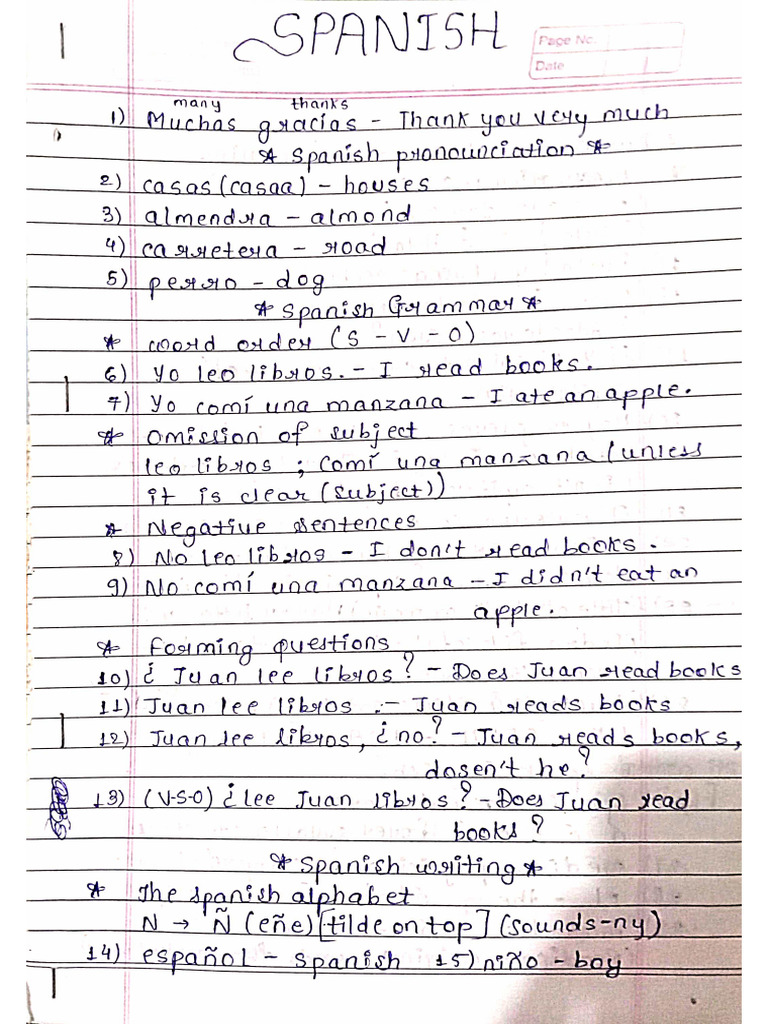 SPANISH
Page No.
Date
many thanks
1) Muchas gracias - Thank you very much
* Spanish pronounciation *
2) casas (casaa) - houses
3) almendra - almond
4) carretera - road
5) perro - dog
* Spanish Grammar *
* word order (S - V - O)
6) Yo leo libros. - I read books.
7) Yo comí una manzana - I ate an apple.
* Omission of subject
leo libros ; comí una manzana (unless
it is clear (subject))
* Negative sentences
8) No leo libros - I don't read books.
9) No comí una manzana - I didn't eat an
apple.
* Forming questions
10) ¿ Juan lee libros? - Does Juan read books
11) Juan lee libros. - Juan reads books
12) Juan lee libros, ¿no? - Juan reads books,
dosen't he?
13) (V-S-O) ¿lee Juan libros? - Does Juan read
books?
* Spanish writing *
* The spanish alphabet
N → Ñ (eñe) [tilde on top] (sounds-ny)
14) español - spanish 15) niño - boy